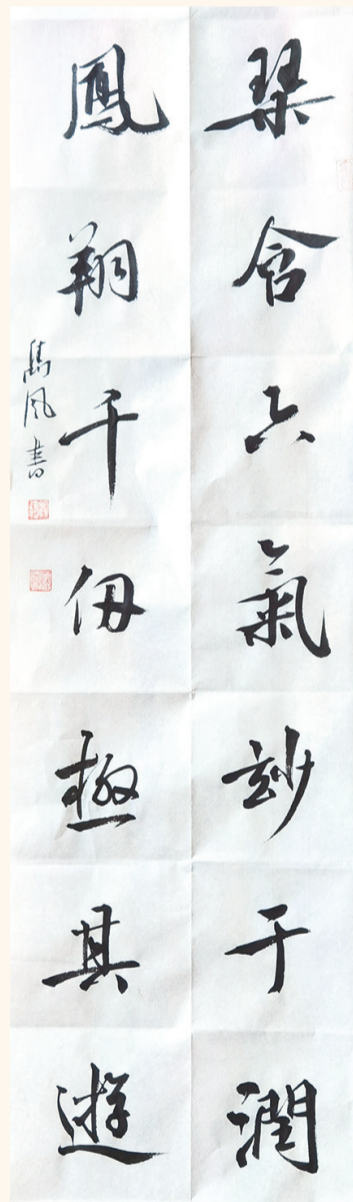 琴含六氣玅于潤
鳳翔千仞極其遊
风書